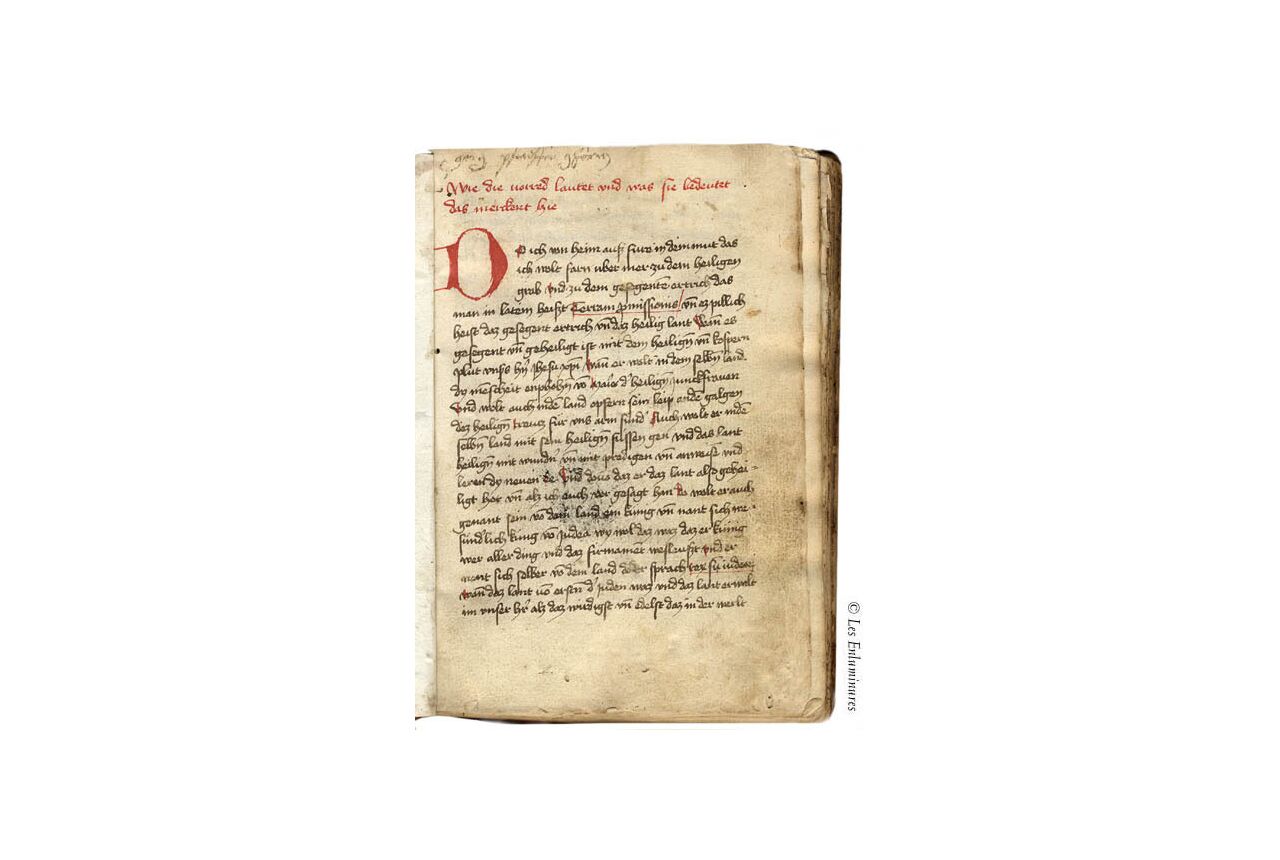 Wie die vorred lautet vnd was sie bedeutet
das merckent hie
DO ich von heim ausz fure in dem mut das
ich wolt farn vber mer zu dem heiligen
grab vnd zu dem gesegente ertrich das
man in latein heist Terram pmissionis / vn̄ ez pillich
heist daz gesegent ertrich vn̄ daz heilig lant Wan̄ es
gesegent vn̄ geheiligt ist mit dem heilign̄ vn̄ kospern
plut vnsz hn̄ Jhesu xp̄i wan̄ er wolt in dem selbn̄ land
dy mēscheit enpfohn̄ vō d' heilign̄ junckfrawen
Vnd wolt auch in dē land opfern sein leip an dē galgen
dez heilign̄ creucz fur vns arm sund' Auch wolt er in dē
selbn̄ land mit sein heilign̄ fussen gen vnd das lant
heilign̄ mit wund'n vn̄ mit predigen vn̄ anweise vnd
leren dy neuen ee Vnd dovō daz er daz lant also gehei=
ligt hot vn̄ alz ich euch vor gesagt han So wolt er auch
genant sein vō dem land ein kunig vn̄ nant sich we=
sundlich kung vō Judea wy wol daz waz daz er kunig
wer aller ding vnd daz firmament wesleust vnd er
nant sich selber vō dem land do er sprach rex su iudeor
wan̄ daz lant vō ersten d' juden waz vnd daz lant erwelt
im vnser hr̄ alz daz wirdigst vn̄ edelst daz in der werlt
© Les Enluminures